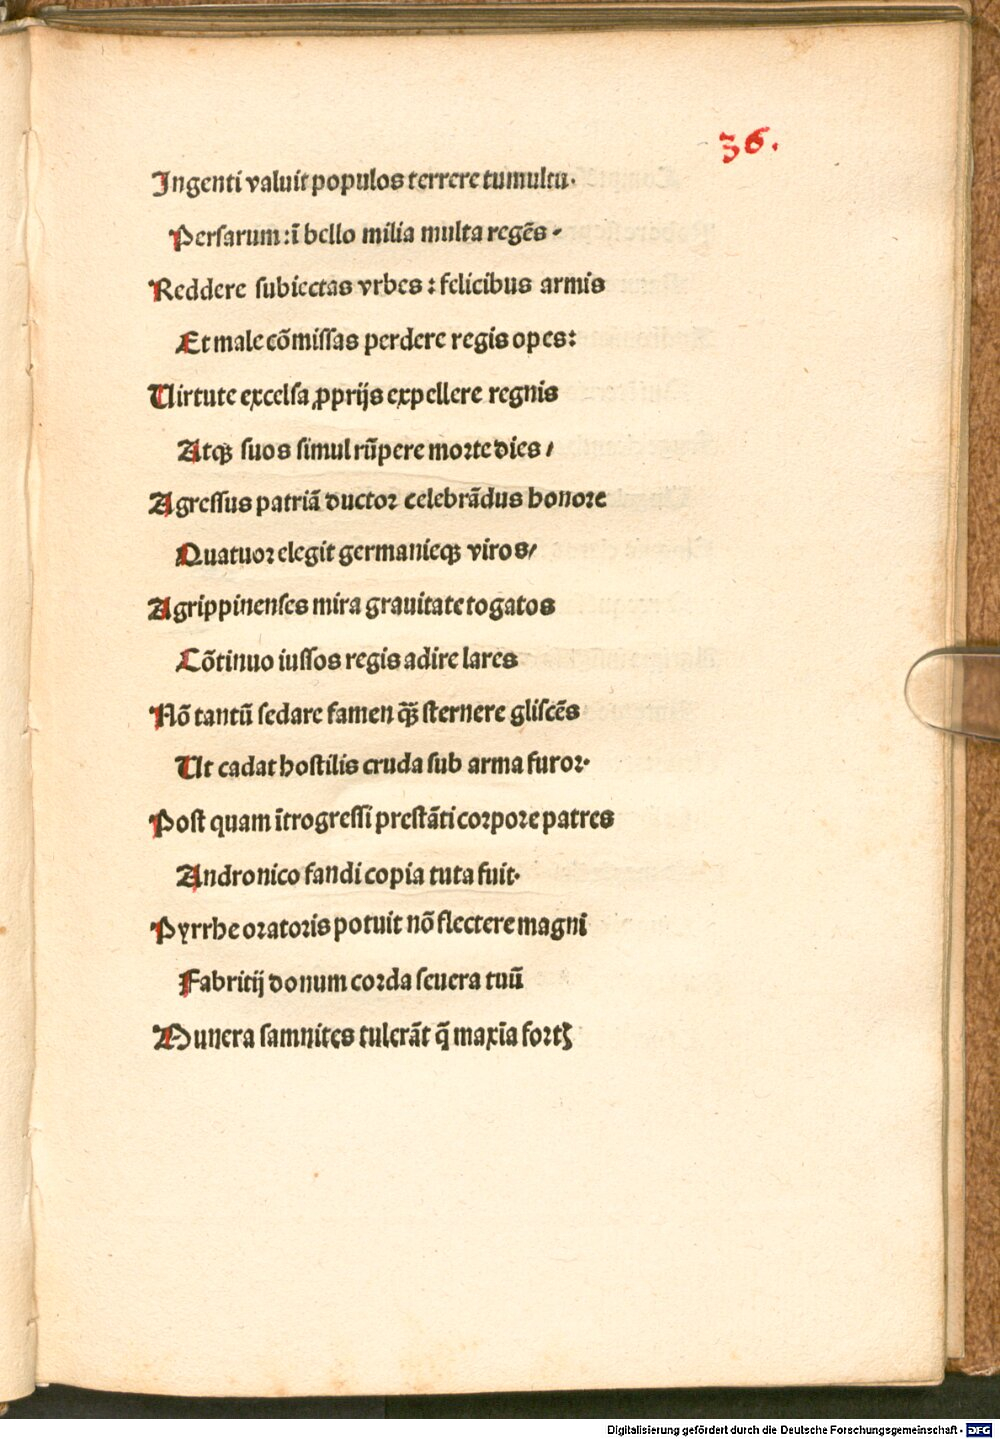 36.
Ingenti valuit populos terrere tumultu.
Persarum: ĩ bello milia multa regẽs.
Reddere subiectas vrbes: felicibus armis
Et male cõmissas perdere regis opes:
Uirtute excelsa ꝓprijs expellere regnis
Atqꝫ suos simul rũpere morte dies/
Agressus patriã ductor celebrãdus honore
Quatuor elegit germanieqꝫ viros/
Agrippinenses mira grauitate togatos
Cõtinuo iussos regis adire lares
Nõ tantũ sedare famen qꝫ̃ sternere gliscẽs
Ut cadat hostilis cruda sub arma furor.
Post quam ĩtrogressi prestãti corpore patres
Andronico fandi copia tuta fuit.
Pyrrhe oratoris potuit nõ flectere magni
Fabritij donum corda seuera tuũ
Munera samnites tulerãt q̃ maxĩa fortꝭ
Digitalisierung gefördert durch die Deutsche Forschungsgemeinschaft - DFG